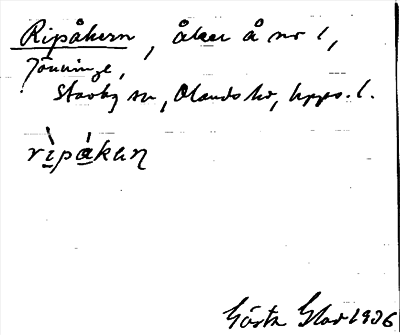 Ripåkern, åker å no 1,
Jönninge,
Stavby sn, Olands hd, Upps. l.
rìpåkan
Gösta Glas 1936